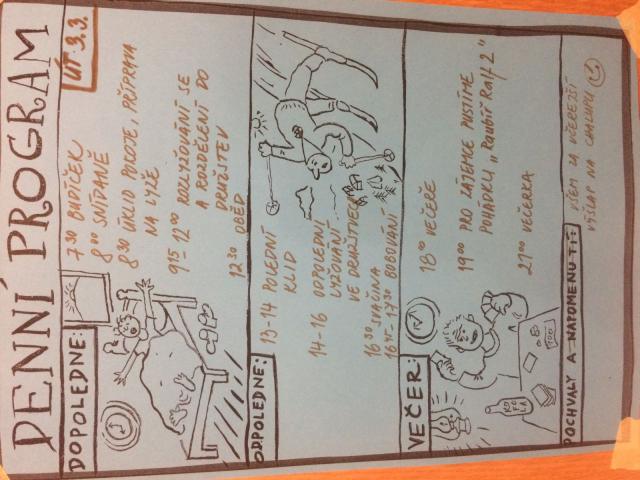 DENNÍ PROGRAM
DOPOLEDNE:
ÚT 3.3.
7³⁰ BUDÍČEK
8⁰⁰ SNÍDANĚ
8³⁰ ÚKLID POKOJE, PŘÍPRAVA
NA LYŽE
9¹⁵-12⁰⁰ ROZLYŽOVÁNÍ SE
A ROZDĚLENÍ DO
DRUŽSTEV
12³⁰ OBĚD
ODPOLEDNE:
13-14 POLEDNÍ
KLID
14-16 ODPOLEDNÍ
LYŽOVÁNÍ
VE DRUŽSTVECH
16³⁰ SVAČINA
16⁴⁵-17³⁰ BOBOVÁNÍ
VEČER:
18⁰⁰ VEČEŘE
19⁰⁰ PRO ZÁJEMCE PUSTÍME
POHÁDKU „Raubíř Ralf 2"
21⁰⁰ VEČERKA
KOFOLA
POCHVALY A NAPOMENUTÍ:
VŠEM ZA VČEREJŠÍ
VÝŠLAP NA CHALUPU